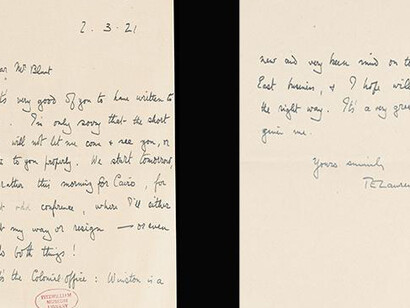 2.3.21
ar Mr Blunt
t's very good of you to have written to
I'm only sorry that the short
will not let me come & see you, or
to you properly. We start tomorrow,
rather this morning for Cairo, for
odd conference, where I'll either
t my way or resign — or even
do both things!
t's the Colonial Office: Winston is a
FITZWILLIAM
MUSEUM
new and very keen mind on the
East business, & I hope will
the right way. It's a very grea
given me.
Yours sincerely
TELawren